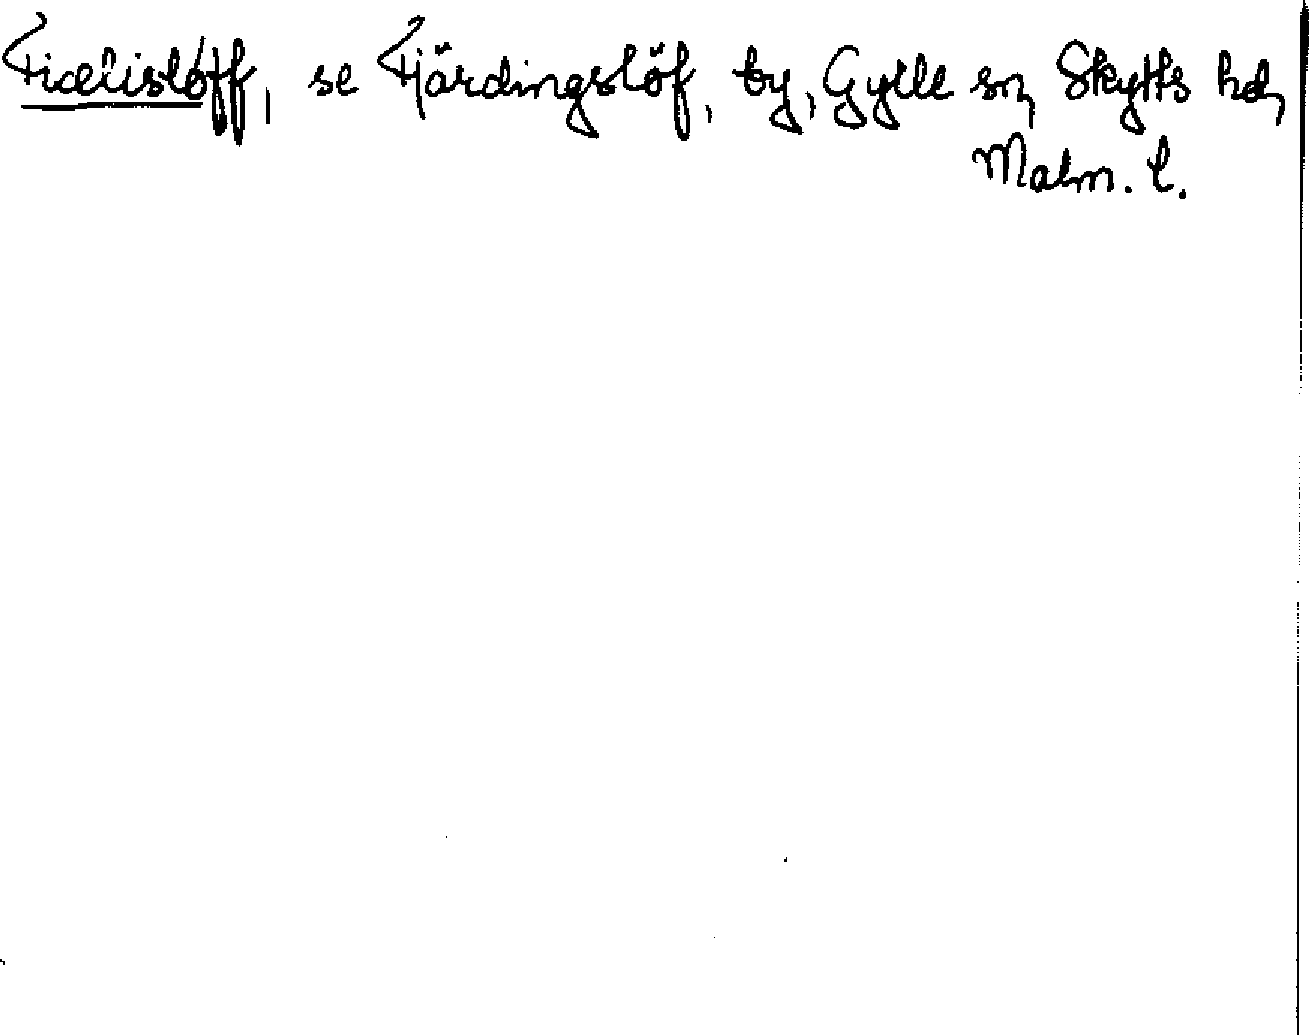 Fiælisløff, se Fjärdingslöf, by, Gylle sn, Skytts hd,
Malm. l.